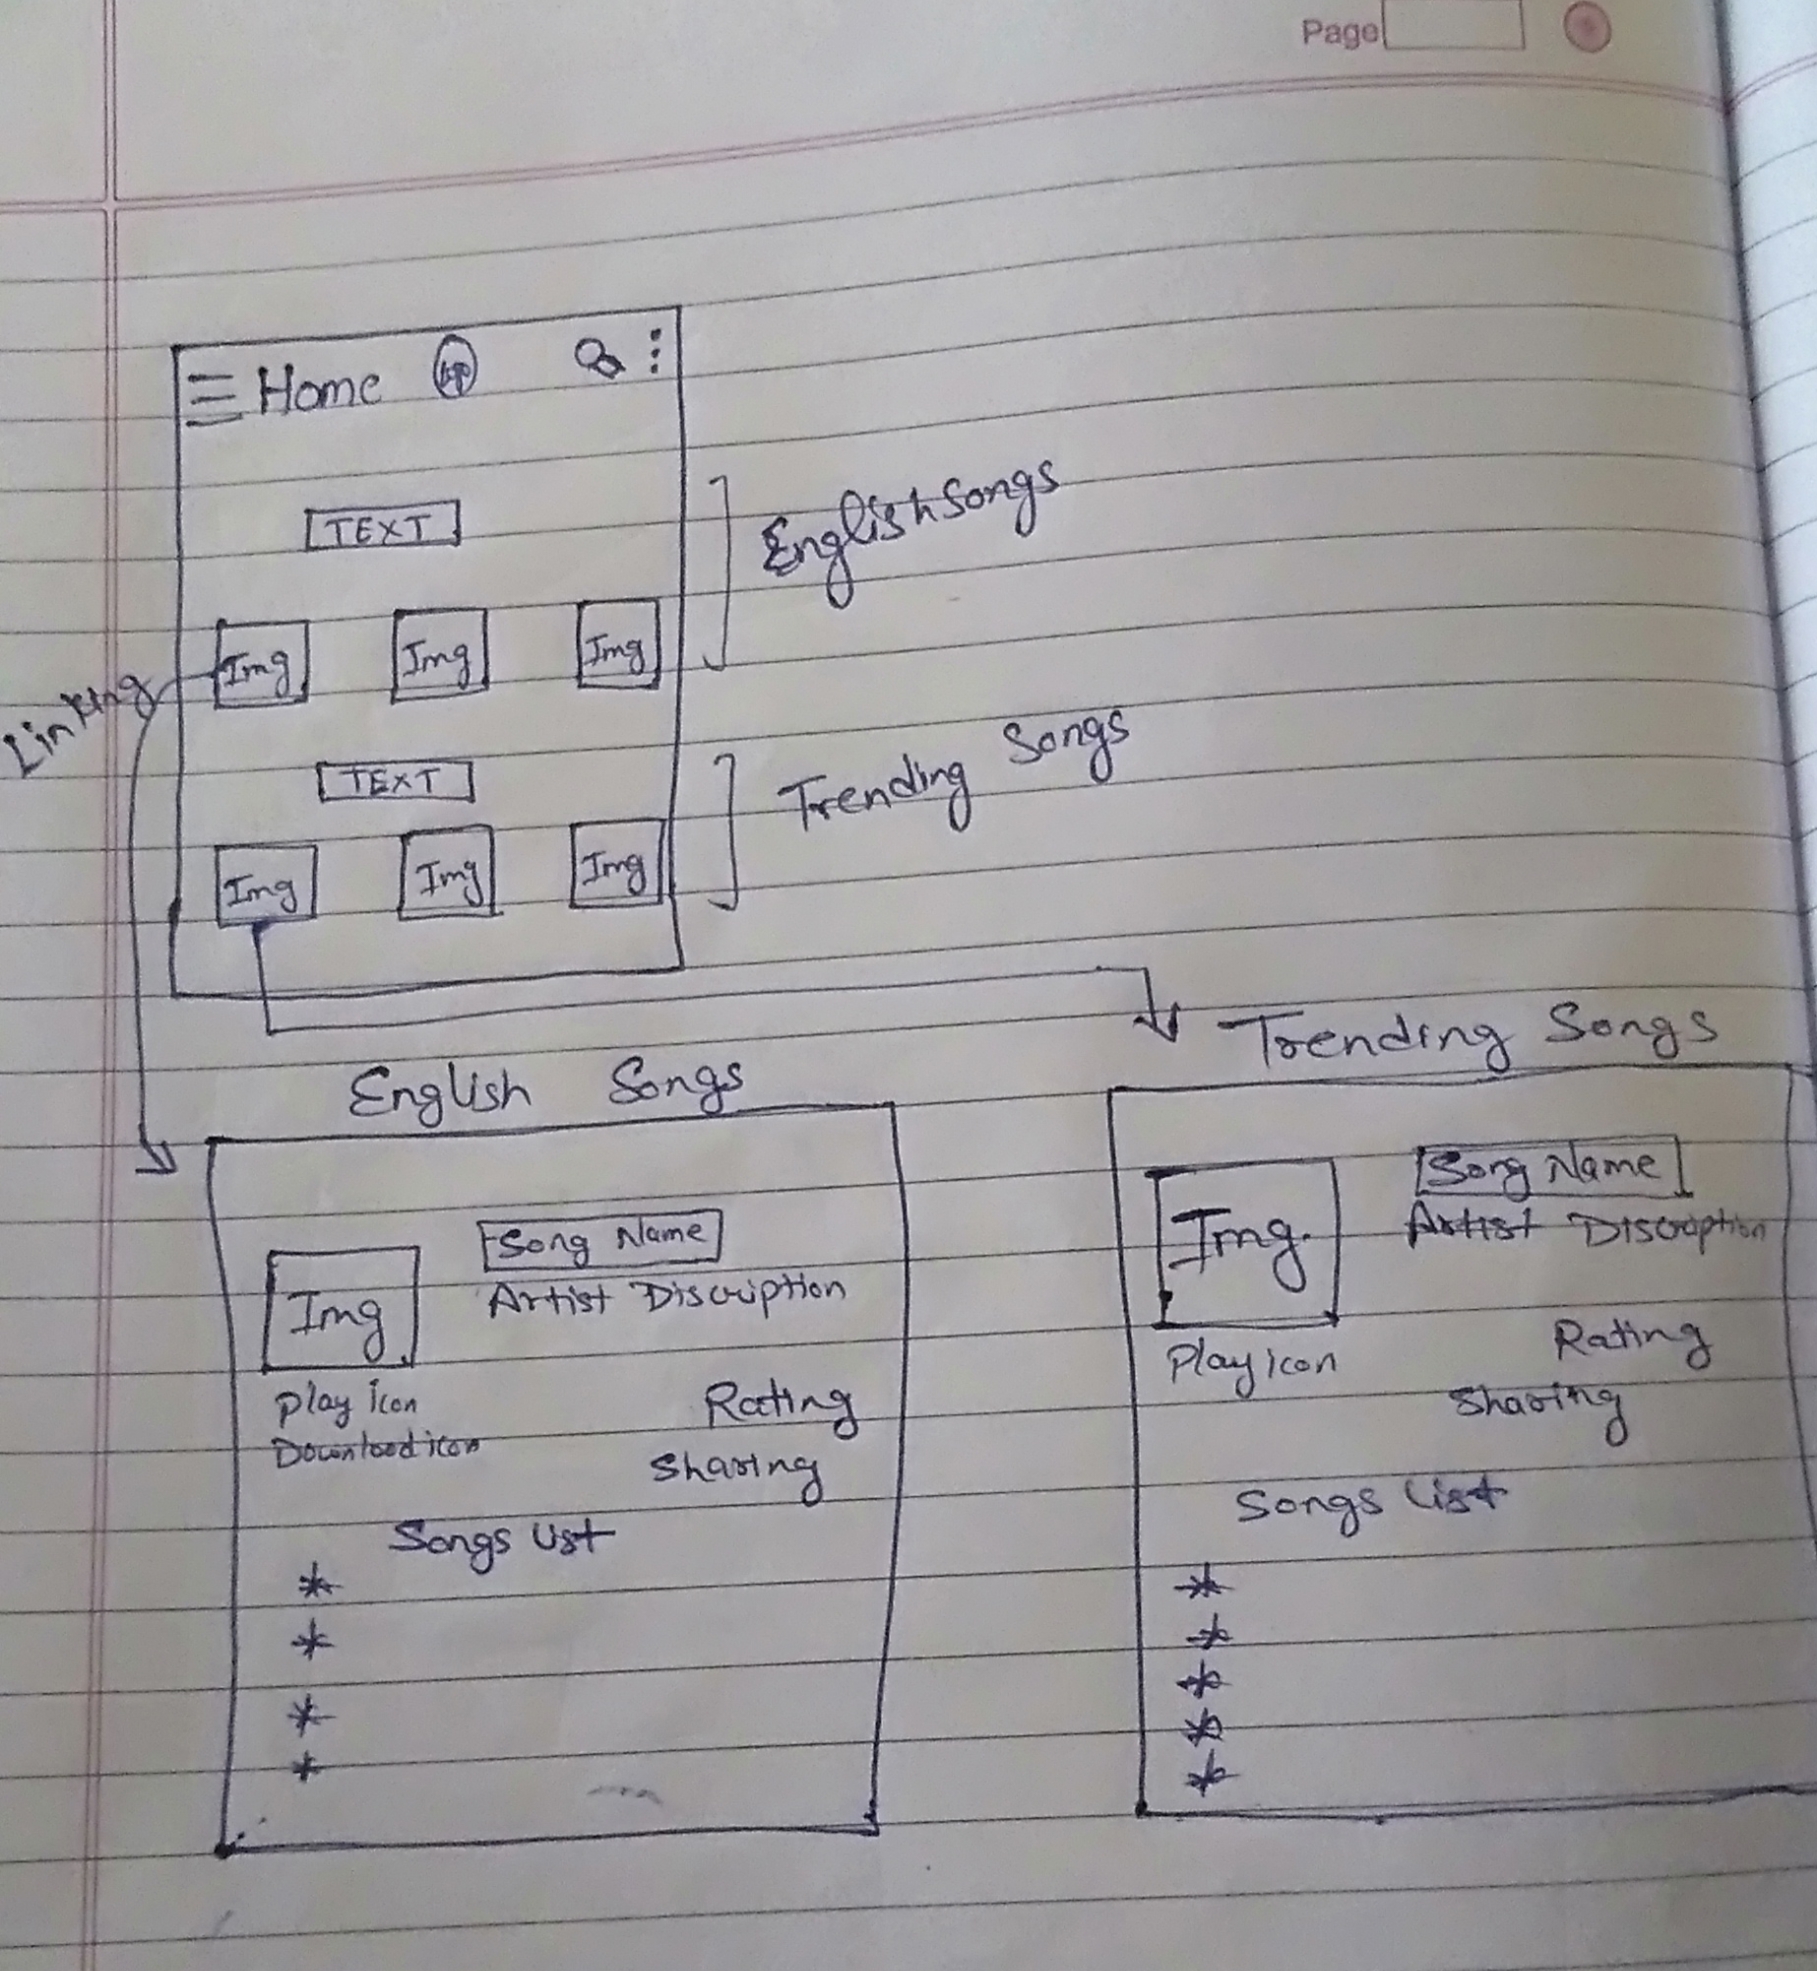 Page
Home
TEXT
English Songs
Img Img Img
Linking
TEXT
Trending Songs
Img Img Img
English Songs
Song Name
Artist Discription
Img
Play icon
Download icon
Rating
Sharing
Songs List
*
*
*
*
Trending Songs
Song Name
Artist Discription
Img.
Play icon
Rating
Sharing
Songs List
*
*
*
*
*